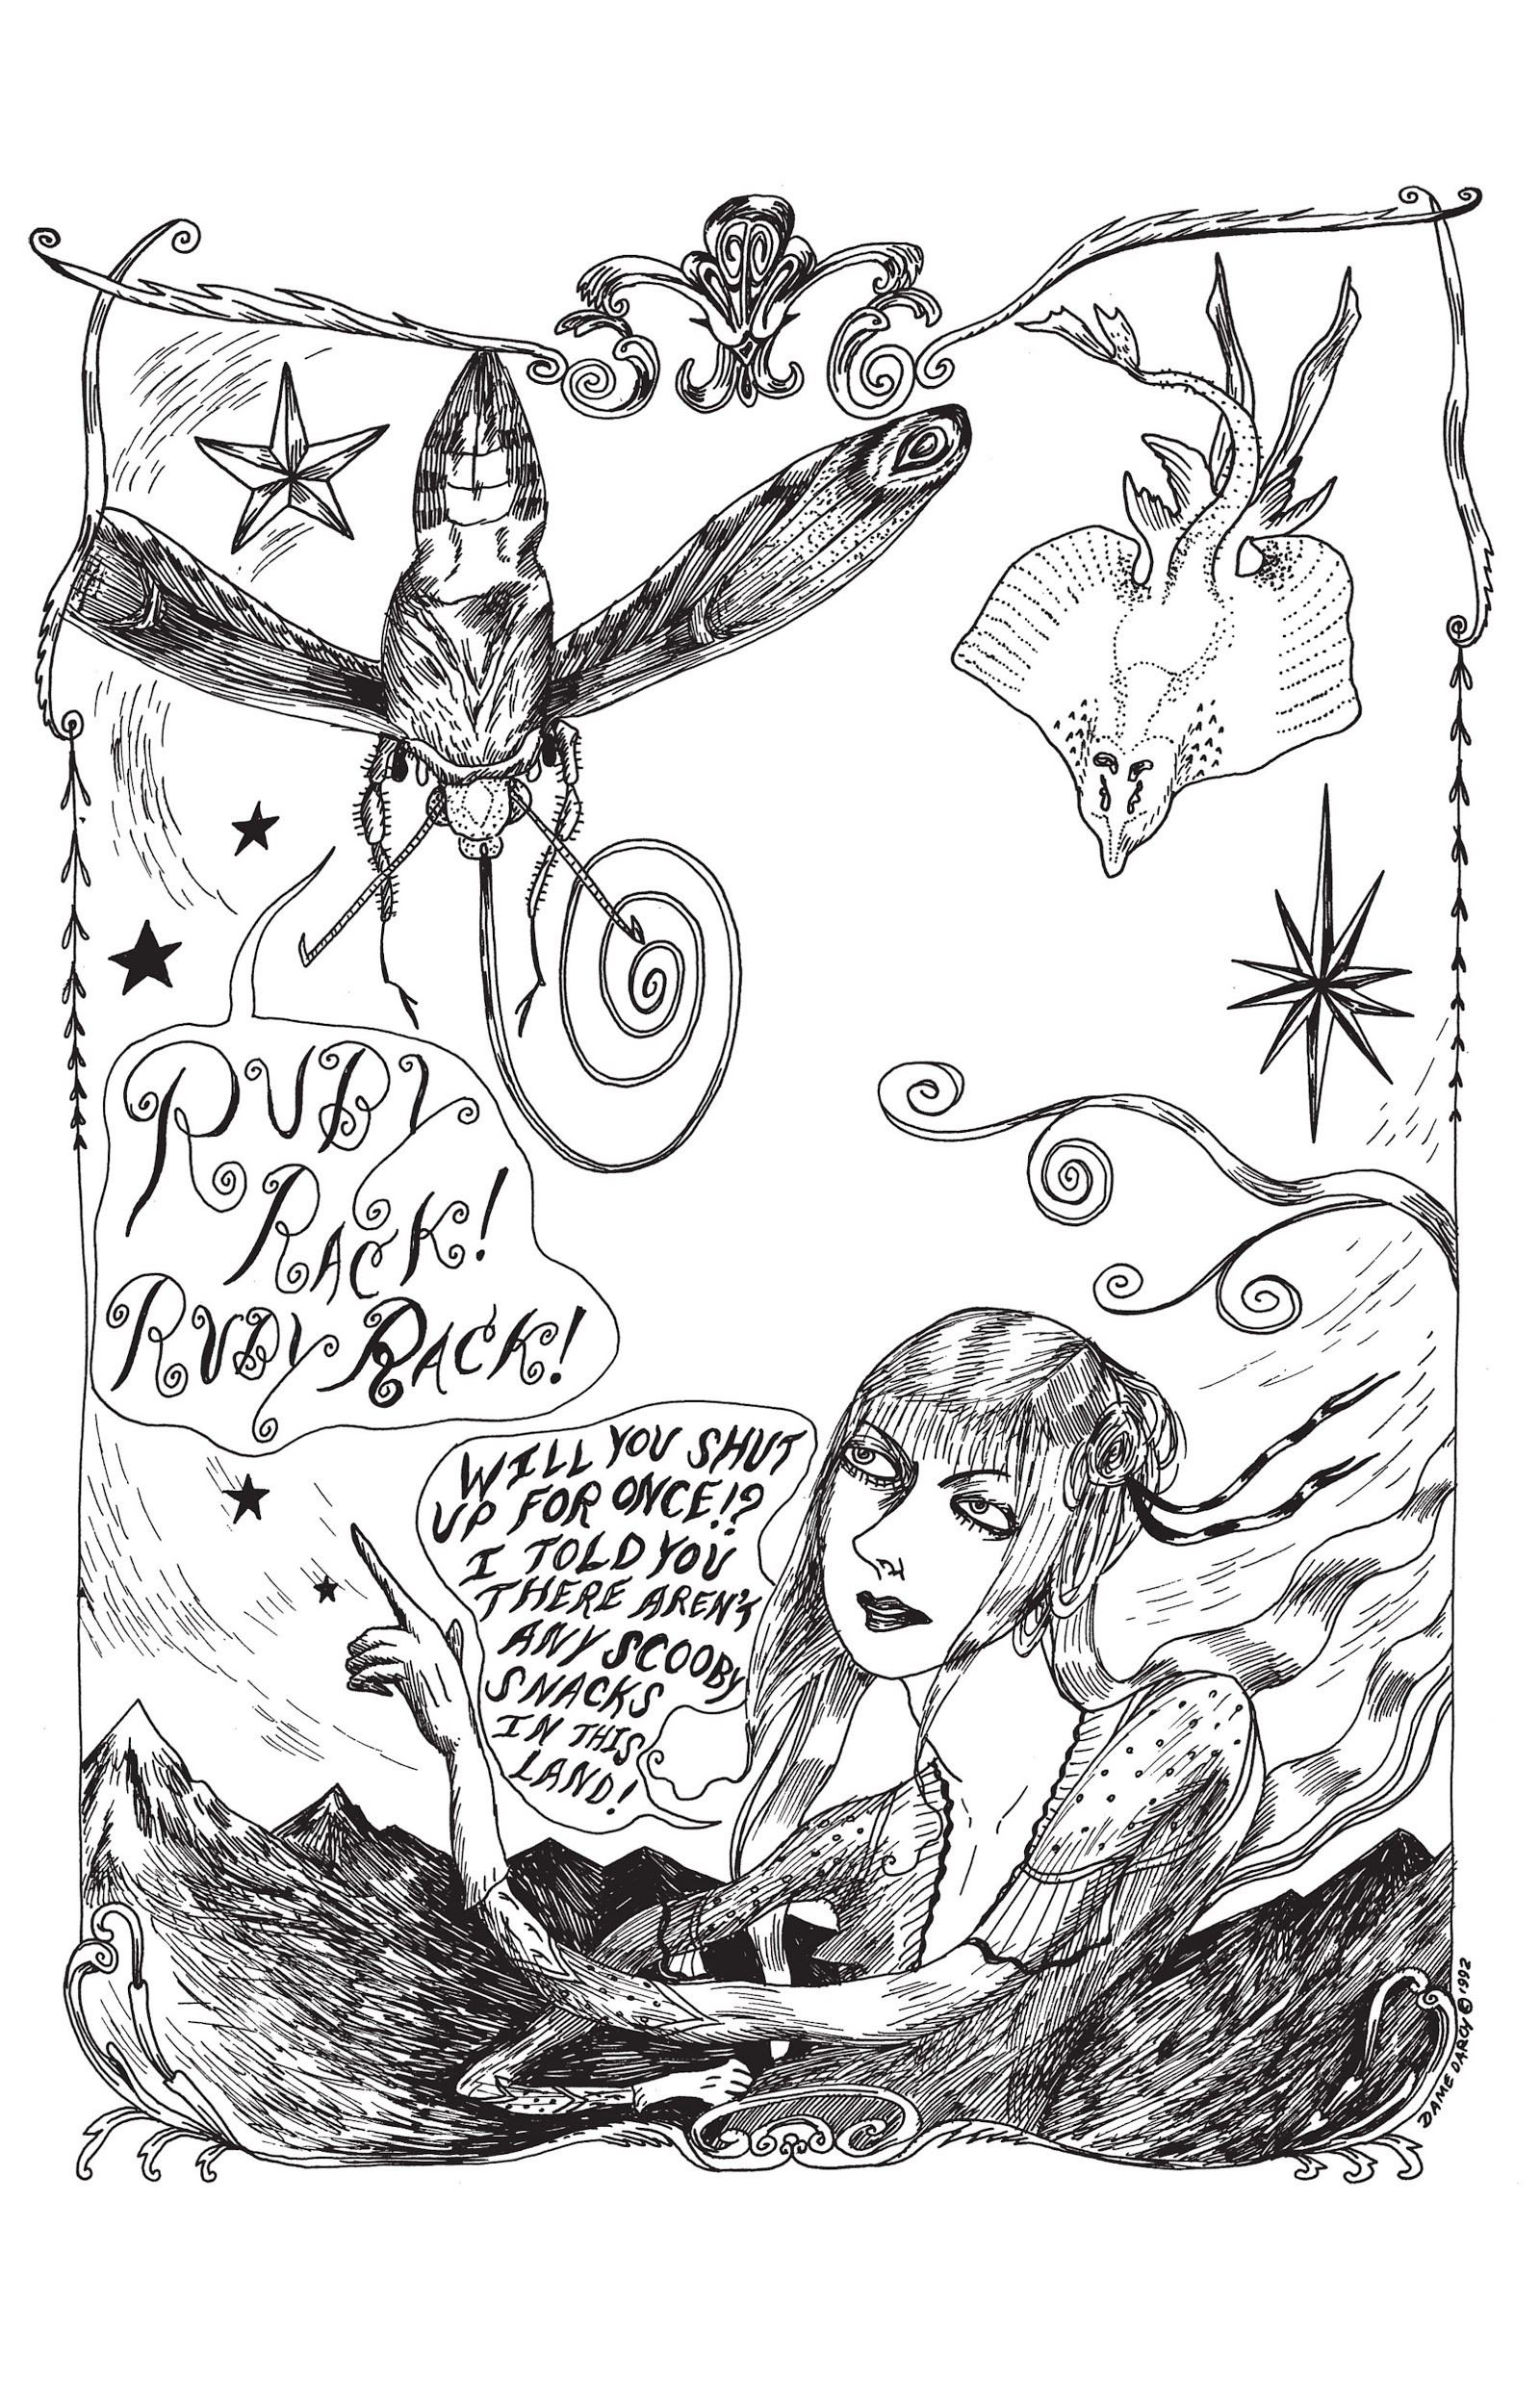 RUBY
RACK!
RUBY RACK!
WILL YOU SHUT
UP FOR ONCE!?
I TOLD YOU
THERE AREN'T
ANY SCOOBY
SNACKS
IN THIS
LAND!
DAME DARCY © 1992